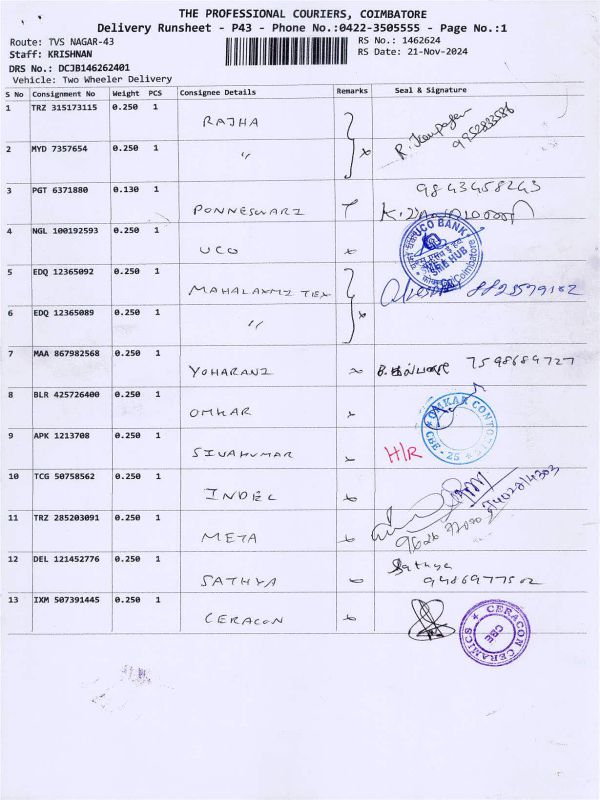 THE PROFESSIONAL COURIERS, COIMBATORE
Delivery Runsheet - P43 - Phone No.:0422-3505555 - Page No.:1
Route: TVS NAGAR-43 RS No.: 1462624
Staff: KRISHNAN RS Date: 21-Nov-2024
DRS No.: DCJB146262401
Vehicle: Two Wheeler Delivery
S No Consignment No Weight PCS Consignee Details Remarks Seal & Signature
1 TRZ 315173115 0.250 1 RAJHA
9952833586
2 MYD 7357654 0.250 1 〃
3 PGT 6371880 0.130 1 PONNESWARI 9843458243
4 NGL 100192593 0.250 1 UCO UCO BANK SME HUB Coimbatore
5 EDQ 12365092 0.250 1 MAHALAXMI TEX
6 EDQ 12365089 0.250 1 〃
7 MAA 867982568 0.250 1 YOHARANI 7598684727
8 BLR 425726400 0.250 1 OMKAR OMKAR CBE - 25
9 APK 1213708 0.250 1 SIVAKUMAR H/R
10 TCG 50758562 0.250 1 INDEL
11 TRZ 285203091 0.250 1 META
12 DEL 121452776 0.250 1 SATHYA Sathya
9486977502
13 IXM 507391445 0.250 1 CERACON CERACON CERAMICS CBE